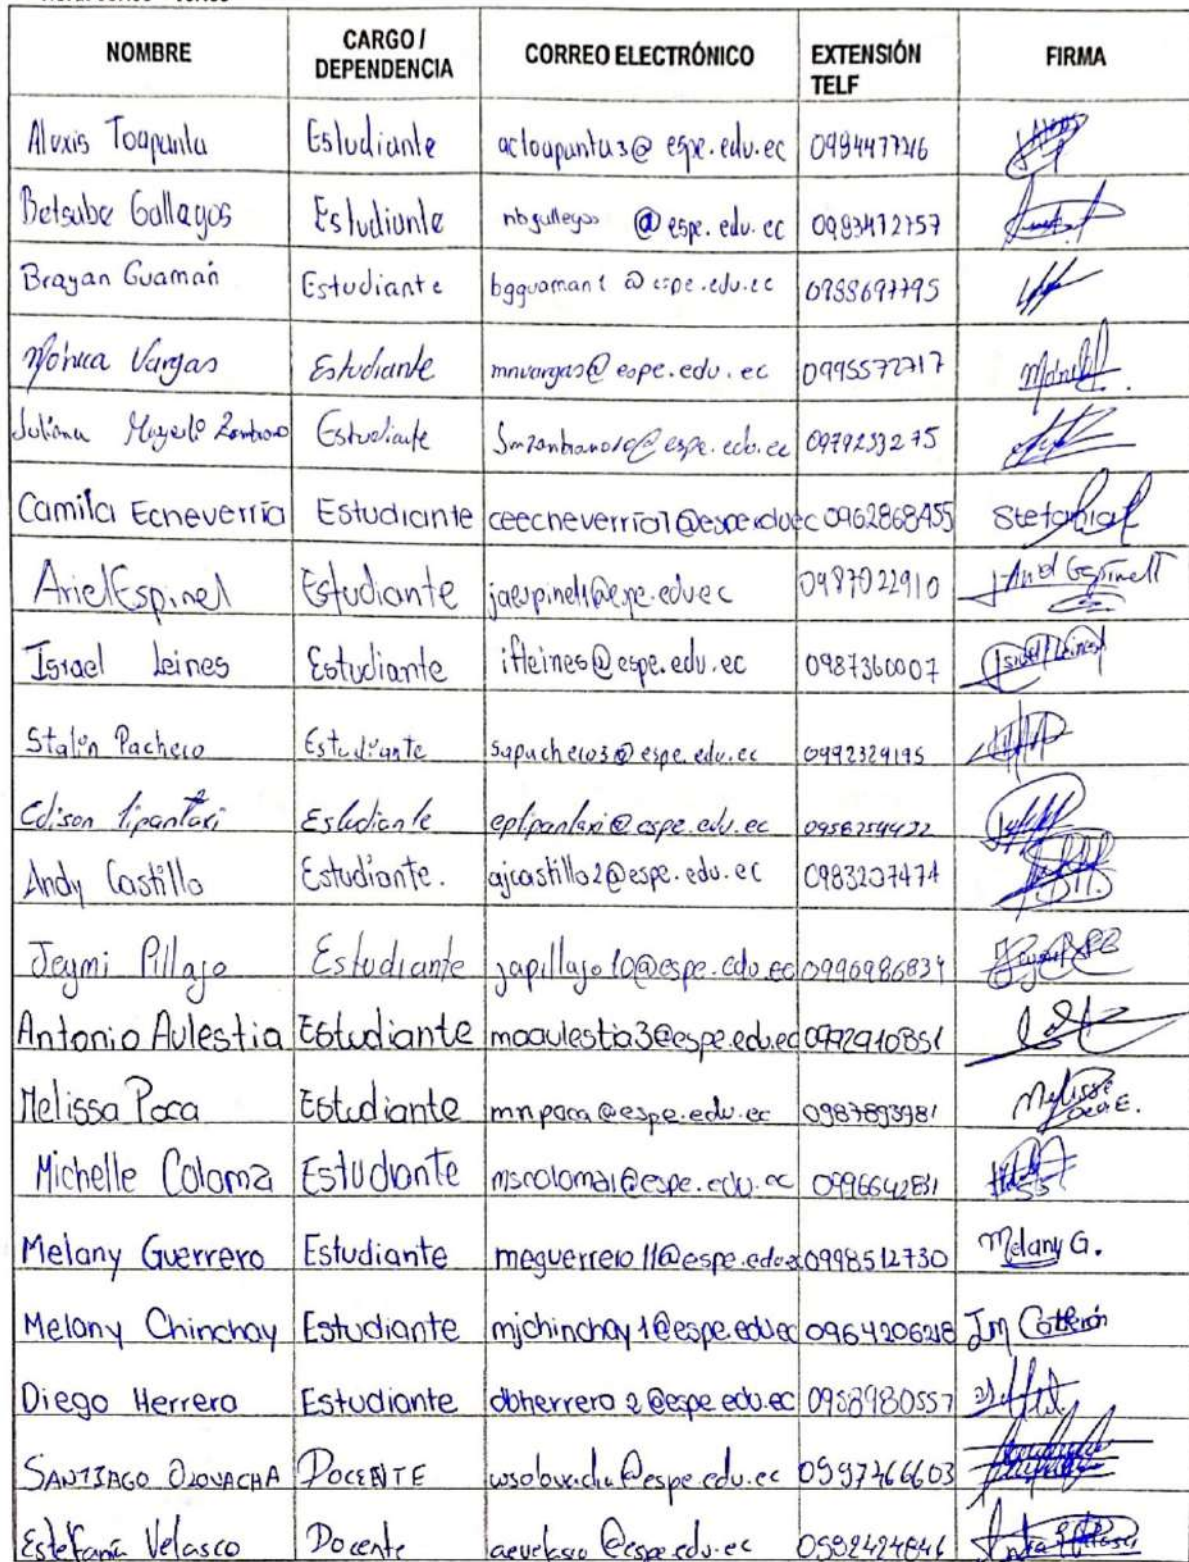 NOMBRE CARGO / DEPENDENCIA CORREO ELECTRÓNICO EXTENSIÓN TELF FIRMA
Alexis Toapanta Estudiante actoapanta3@espe.edu.ec 0984477216
Betsabe Gallegos Estudiante nbgallegos @espe.edu.ec 0983472757
Brayan Guamán Estudiante bgguaman1@espe.edu.ec 0988697795
Mónica Vargas Estudiante mnvargas@espe.edu.ec 0995572717
Juliana Estudiante 0979253275
Camila Echeverría Estudiante ceecheverria1@espe.edu.ec 0962868455 Stefania
Ariel Espinel Estudiante jaespinel1@espe.edu.ec 0987022910 Ariel Espinel
Israel Leines Estudiante ifleines@espe.edu.ec 0987360007 Israel Leines
Stalin Pacheco Estudiante sapacheco3@espe.edu.ec 0992329195
Edison Tipantaxi Estudiante eptipantaxi@espe.edu.ec 0958254422
Andy Castillo Estudiante. ajcastillo2@espe.edu.ec 0983207474
Jeymi Pillajo Estudiante japillajo10@espe.edu.ec 0996986834
Antonio Aulestia Estudiante maaulestia3@espe.edu.ec 0992910851
Melissa Poca Estudiante mnpoca@espe.edu.ec 0987893981 Melissa
Michelle Coloma Estudiante mscoloma1@espe.edu.ec 0996642831
Melany Guerrero Estudiante meguerrero11@espe.edu.ec 0998512730 Melany G.
Melany Chinchay Estudiante mjchinchay1@espe.edu.ec 0964206218
Diego Herrera Estudiante dbherrera2@espe.edu.ec 0958980557
SANTIAGO OLOVACHA DOCENTE wsolovacha@espe.edu.ec 0597466603
Estefanía Velasco Docente aevelasco@espe.edu.ec 0592424846